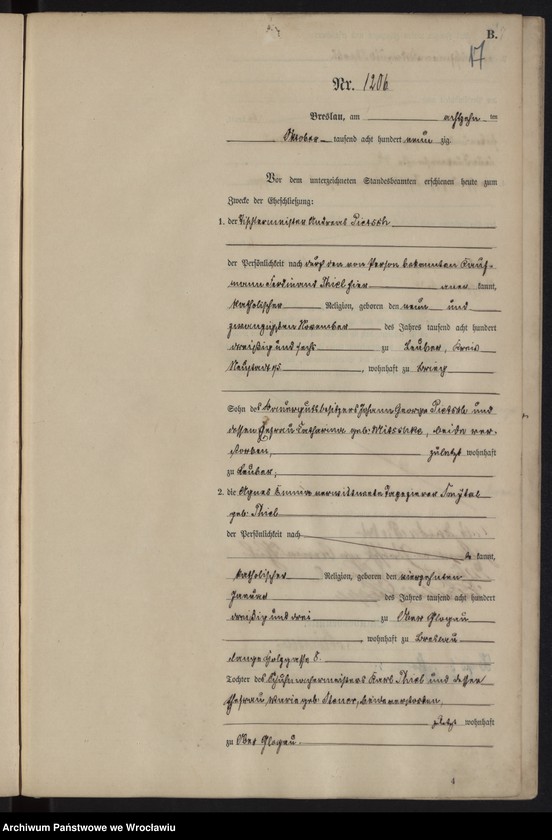 B.
17
Nr. 1206
Breslau, am achtzehn ten
Oktober tausend acht hundert neun zig
Vor dem unterzeichneten Standesbeamten erschienen heute zum
Zwecke der Eheschließung:
1. der Tischlermeister Andreas Pietsch
der Persönlichkeit nach durch den von Person bekannten Kauf-
mann Ferdinand Thiel hier aner kannt,
katholischer Religion, geboren den neun und
zwanzigsten November des Jahres tausend acht hundert
dreißig und sechs zu Leuber, Kreis
Neustadt O/S, wohnhaft zu Brieg
Sohn des Bauergutsbesitzers Johann George Pietsch und
dessen Ehefrau Catharina geb. , beide ver-
storben, zuletzt wohnhaft
zu Leuber,
2. die Agnes Emma verwittwete Tapezierer
geb. Thiel
der Persönlichkeit nach
kannt,
katholischer Religion, geboren den vierzehnten
Januar des Jahres tausend acht hundert
dreißig und drei zu Ober Glogau
, wohnhaft zu Breslau
lange Holzgasse 8.
Tochter des Schuhmachermeisters Karl Thiel und dessen
Ehefrau Maria geb. , beide verstorben,
zuletzt wohnhaft
zu Ober Glogau.
4
Archiwum Państwowe we Wrocławiu